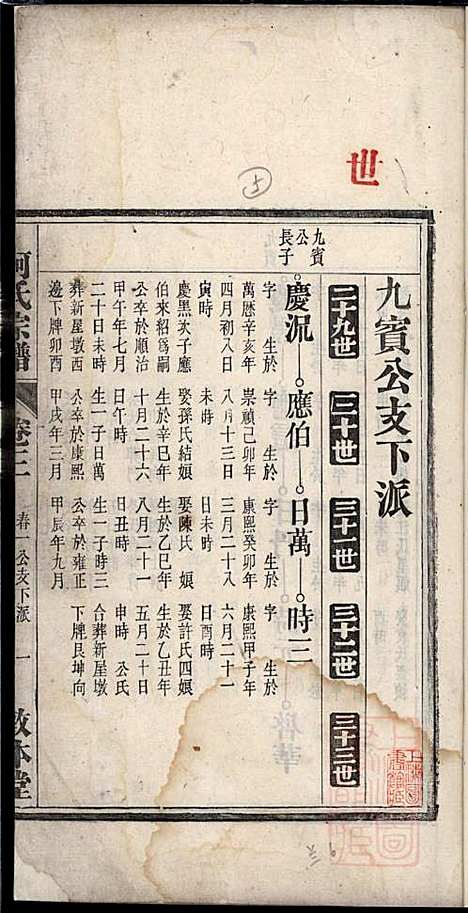 世
5
九賓公支下派
二十九世 三十世 三十一世 三十二世 三十三世
九賓公長子
慶況 應伯 日萬 時三
字 生於
萬曆辛亥年
四月初八日
寅時
慶黑次子應
伯來紹爲嗣
公卒於順治
甲午年七月
二十日未時
葬新屋墩酉
邊下牌卯酉
字 生於
崇禎己卯年
八月十三日
未時
娶孫氏結娘
生於辛巳年
十月二十六
日午時
生一子日萬
公卒於康熙
甲戌年三月
字 生於
康熙癸卯年
三月二十八
日未時
娶陳氏 娘
生於乙巳年
八月二十一
日丑時
生一子時三
公卒於雍正
甲辰年九月
字 生於
康熙甲子年
六月二十一
日酉時
娶許氏四娘
生於乙丑年
五月二十日
申時 公氏
合葬新屋墩
下牌艮坤向
何氏宗譜
卷三
春一公支下派
一
敦本堂